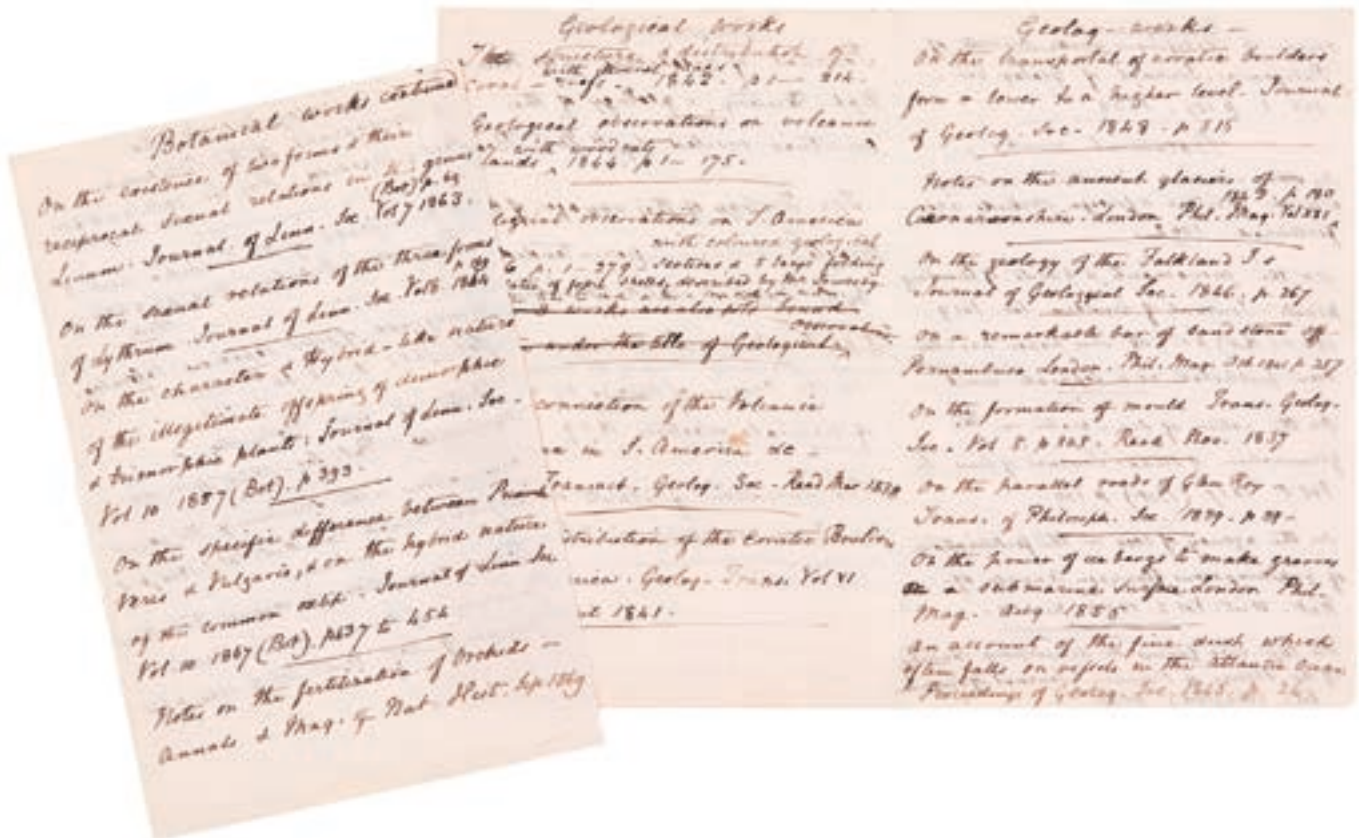 Botanical works continued
On the existence of two forms & their
reciprocal sexual relations in genus
(Bot) p. 69
Linum. Journal of Linn. Soc. Vol 7 1863.
On the sexual relations of the three forms
of Lythrum. Journal of Linn. Soc. Vol 8. 1864
On the character & Hybrid-like nature
of the illegitimate offspring of dimorphic
& trimorphic plants: Journal of Linn. Soc.
Vol 10 1867 (Bot). p 393.
On the specific difference between
Veris & Vulgaris, & on the hybrid nature
of the common oxlip. Journal of Linn Soc
Vol 10 1867 (Bot). p 437 to 454
Notes on the fertilization of Orchids —
Annals & Mag. of Nat. Hist. Sep 1869
Geological works
The structure & distribution of
Coral - reefs 1842. p 1 — 214.
Geological observations on volcanic
with woodcuts
lands, 1844 p 1 — 175.
logical observations on S. America
with coloured geological
p. 1 — 279. Sections & 5 large folding
of shells, described by
works
under the title of Geological
connection of the Volcanic
in S. America &c —
Transact. Geolog. Soc - Read Mar 1838
istribution of the erratic Boulders
erica. Geolog. Trans. Vol VI
1841.
Geolog - works —
On the transportal of erratic boulders
from a lower to a higher level. Journal
of Geolog. Soc. 1848. p 315
Notes on the ancient glaciers of —
p 180
Caernarvonshire. London Phil. Mag. Vol
On the geology of the Falkland Is
Journal of Geological Soc. 1846. p 267
On a remarkable bar of sandstone off
Pernambuco London. Phil. Mag. Oct 1841 p 257
On the formation of mould Trans. Geolog.
Soc. Vol 5. p 505. Read Nov. 1837
On the parallel roads of Glen Roy —
Trans. of Philosoph. Soc. 1839. p 39 —
On the power of icebergs to make grooves
on a submarine surface London Phil.
Mag. Aug 1855
An account of the fine dust which
often falls on vessels in the Atlantic Ocean
Proceedings of Geolog. Soc. 1845. p. 26